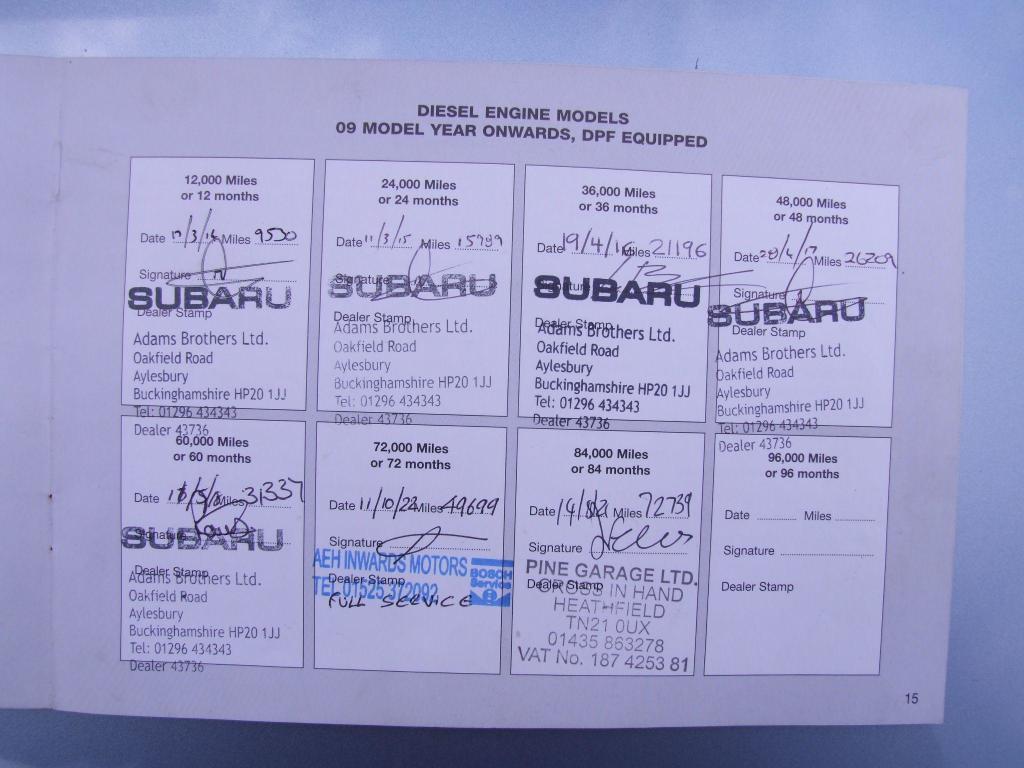 DIESEL ENGINE MODELS
09 MODEL YEAR ONWARDS, DPF EQUIPPED
12,000 Miles
or 12 months
Date 17/3/14 Miles 9550
Signature
SUBARU
Dealer Stamp
Adams Brothers Ltd.
Oakfield Road
Aylesbury
Buckinghamshire HP20 1JJ
Tel: 01296 434343
Dealer 43736
24,000 Miles
or 24 months
Date 11/3/15 Miles 15789
Signature
SUBARU
Dealer Stamp
Adams Brothers Ltd.
Oakfield Road
Aylesbury
Buckinghamshire HP20 1JJ
Tel: 01296 434343
Dealer 43736
36,000 Miles
or 36 months
Date 19/4/16 Miles 21196
Signature
SUBARU
Dealer Stamp
Adams Brothers Ltd.
Oakfield Road
Aylesbury
Buckinghamshire HP20 1JJ
Tel: 01296 434343
Dealer 43736
48,000 Miles
or 48 months
Date 28/4/17 Miles 26209
Signature
SUBARU
Dealer Stamp
Adams Brothers Ltd.
Oakfield Road
Aylesbury
Buckinghamshire HP20 1JJ
Tel: 01296 434343
Dealer 43736
60,000 Miles
or 60 months
Date Miles 31337
Signature
SUBARU
Dealer Stamp
Adams Brothers Ltd.
Oakfield Road
Aylesbury
Buckinghamshire HP20 1JJ
Tel: 01296 434343
Dealer 43736
72,000 Miles
or 72 months
Date 11/10/22 Miles 49699
Signature
AEH INWARDS MOTORS
TEL 01525 372092
BOSCH
Service
Dealer Stamp
FULL SERVICE
84,000 Miles
or 84 months
Date Miles 72739
Signature
PINE GARAGE LTD.
Dealer Stamp
CROSS IN HAND
HEATHFIELD
TN21 0UX
01435 863278
VAT No. 187 4253 81
96,000 Miles
or 96 months
Date Miles
Signature
Dealer Stamp
15